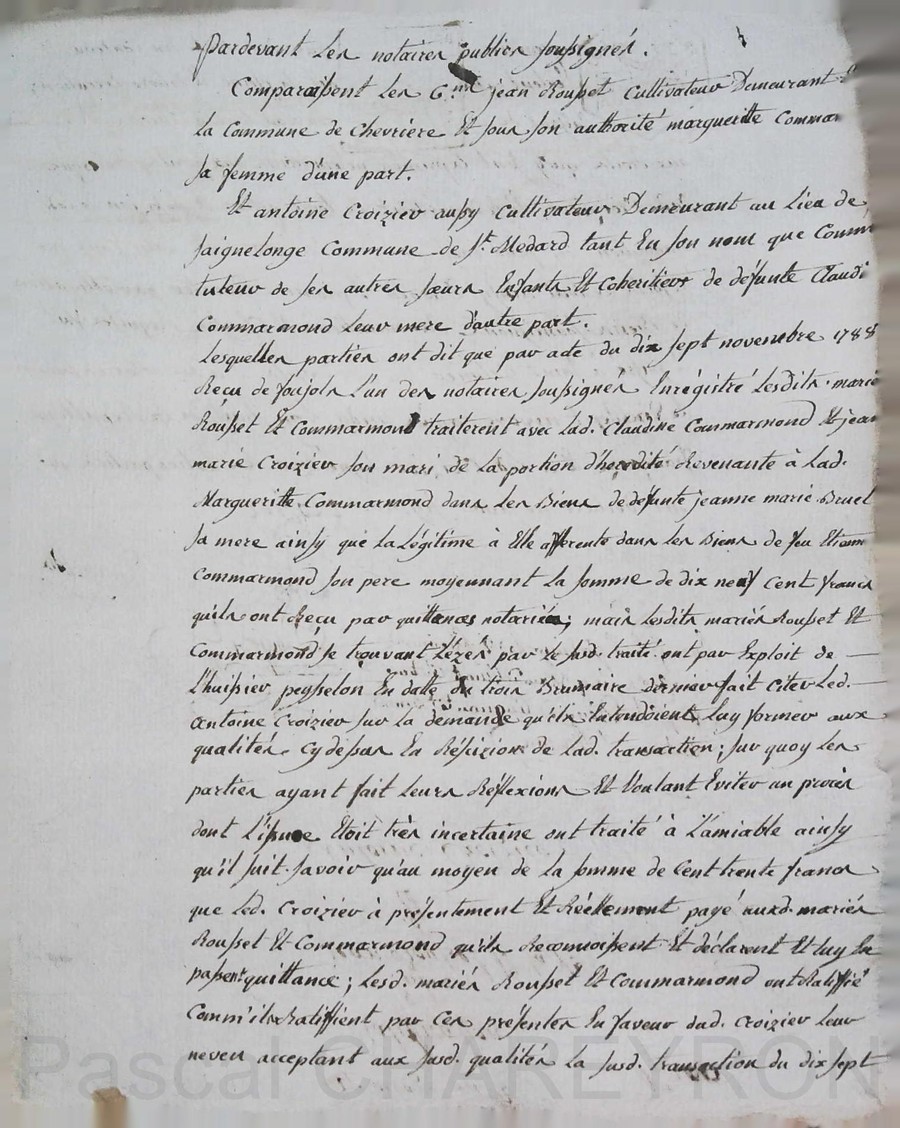 pardevant Les notaires publics soussignés.
Comparaissent Les C.ens jean Rousset Cultivateur Demeurant
la Commune de Chevriere Et sous son authorité margueritte Commar
sa femme d'une part.
Et antoine Croizier aussy Cultivateur Demeurant au Lieu de
saignelonge Commune de St. Medard tant En son nom que Comm
tuteur de ses autres sœurs Enfants Et Coheritiers de défunte Claudi
Commarmond Leur mere d'autre part.
Lesquelles parties ont dit que par acte du dix sept novembre 1788
Recu de foujols L'un des notaires soussignés Enrégistré Lesdits marié
Rousset Et Commarmond traiterent avec Lad. Claudine Commarmond Et jean
marie Croizier son mari de La portion d'heredité Revenante à Lad.
Margueritte Commarmond dans Les Biens de défunte jeanne marie Bruel
sa mere ainsy que La Légitime à Elle afferente dans Les Biens de feu Etienne
Commarmond son pere moyennant La somme de dix neuf Cent francs
qu'ils ont Reçu par quittances notariées; mais Lesdits mariés Rousset Et
Commarmond se trouvant Lézés par Le susd. traité ont par Exploit de
L'huissier peysselon En datte du trois Brumaire dernier fait Citer Led.
antoine Croizier sur La demande qu'ils Entendoient Luy former aux
qualités Cy dessus En Réscizion de Lad. transaction; sur quoy Les
parties ayant fait Leurs Réflexions Et Voulant Eviter un procès
dont L'issue Etoit très incertaine ont traité à L'amiable ainsy
qu'il suit. savoir qu'au moyen de La somme de Cent trente francs
que Led. Croizier à présentement Et Réellement payé auxd. mariés
Rousset Et Commarmond qu'ils Reconnoissent Et déclarent Et Luy En
passent quittance; Lesd. mariés Rousset Et Commarmond ont Ratiffié
Comm'ils Ratiffient par Ces présentes En faveur dud. Croizier Leur
neveu acceptant aux susd. qualités La susd. transaction du dix sept
Pascal CHAREYRON